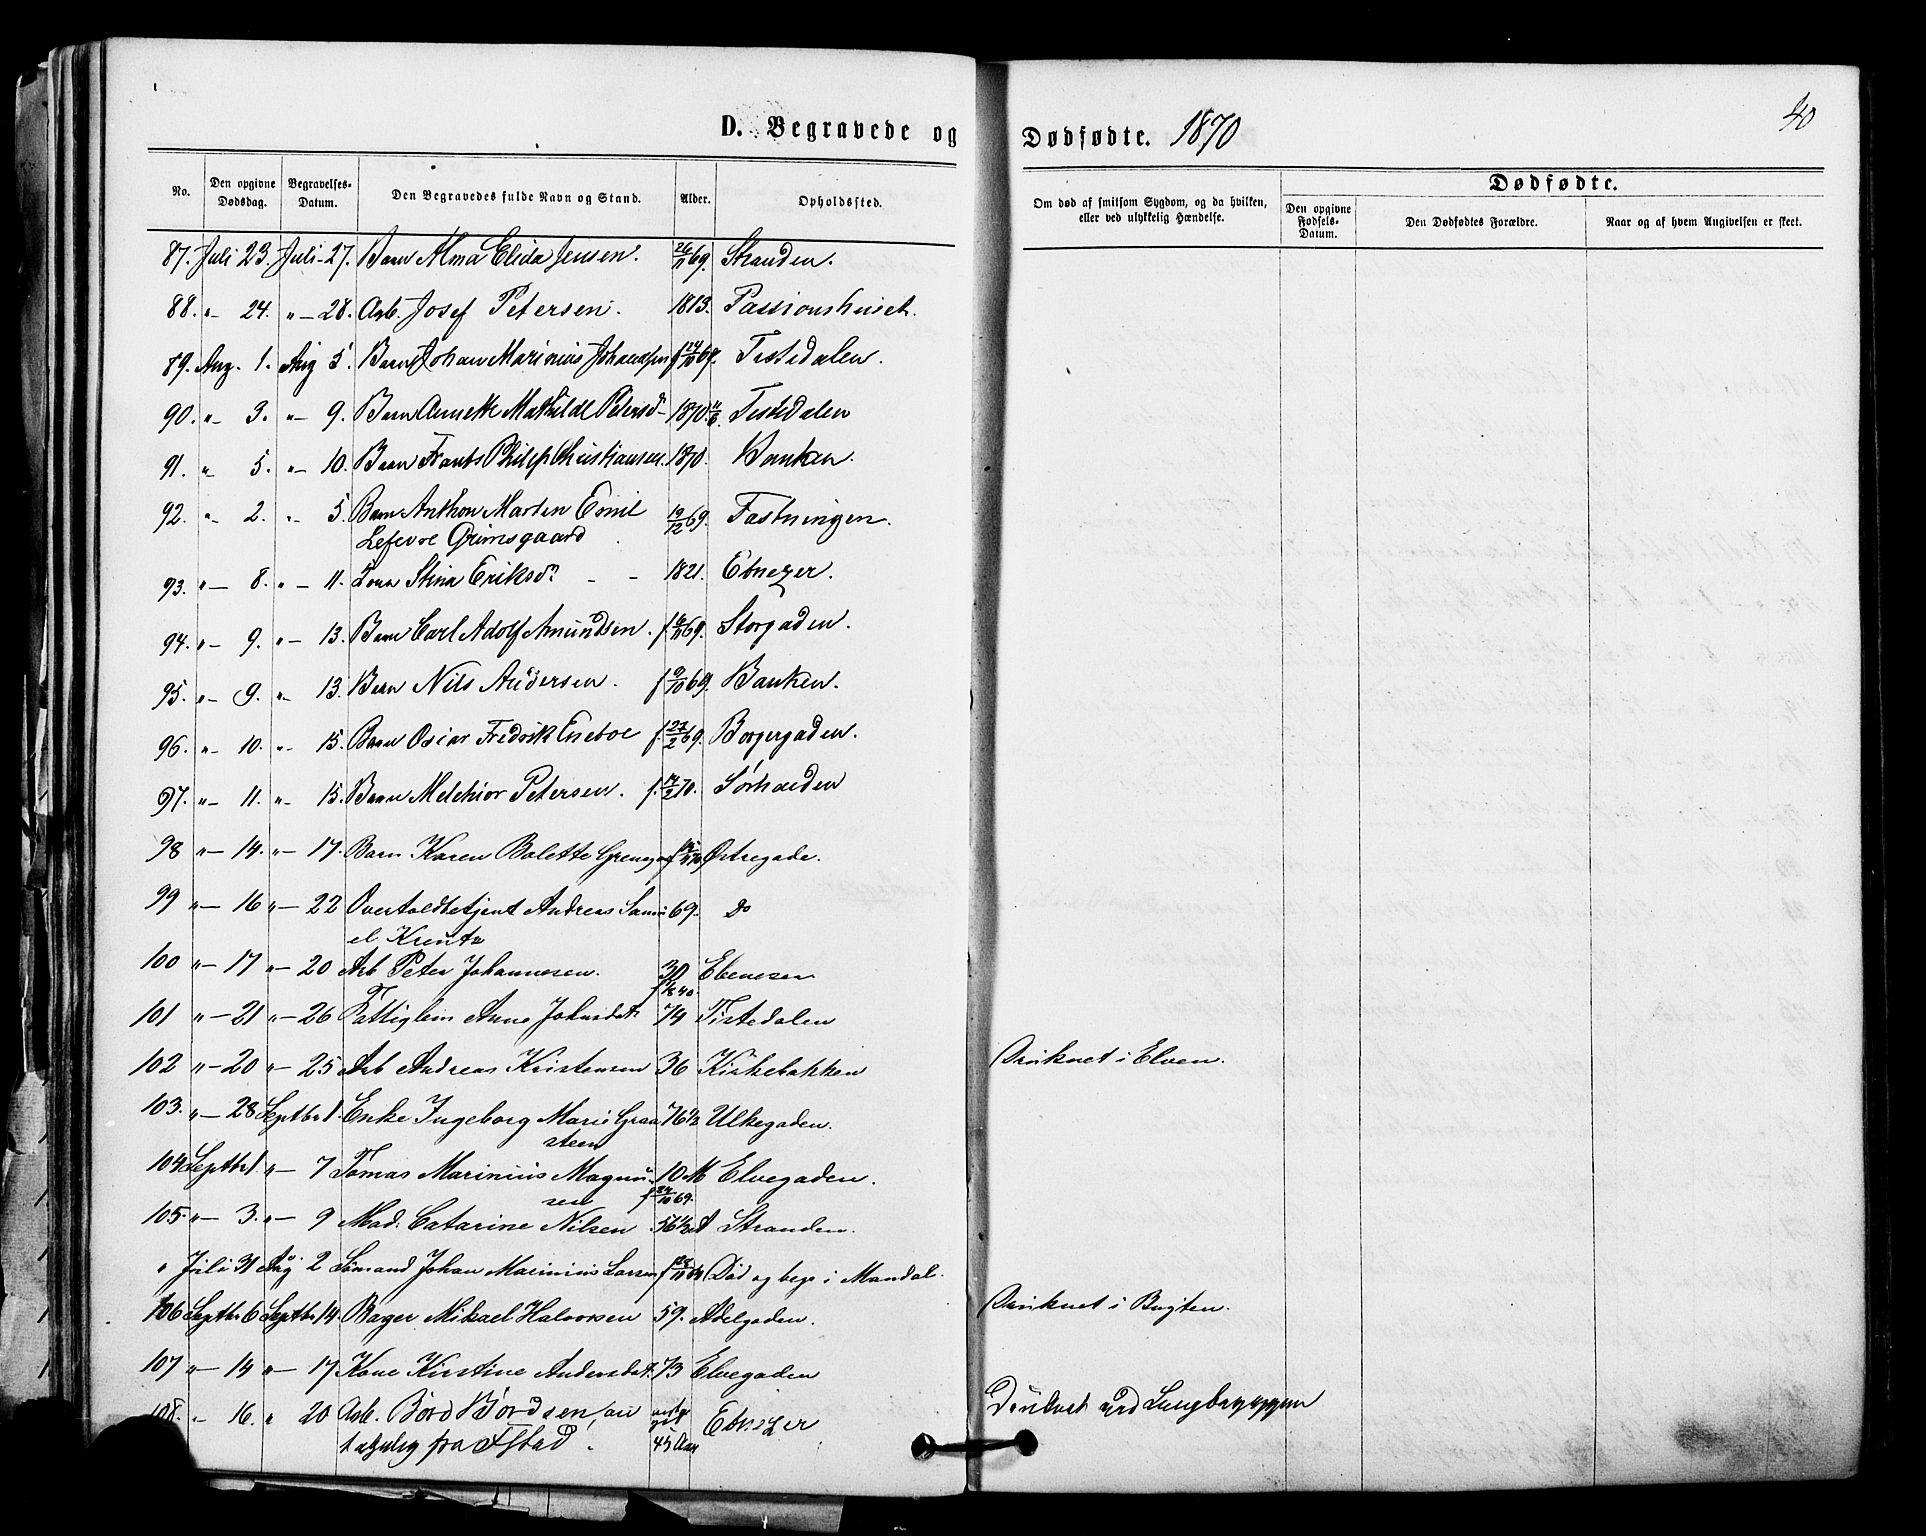 D. Begravede og Dødfødte. 1870 40
No. Den opgivne Dødsdag. Begravelses-Datum. Den Begravedes fulde Navn og Stand. Alder. Opholdssted. Om død af smitsom Sygdom, og da hvilken, eller ved ulykkelig Hændelse. Dødfødte.
Den opgivne Fødsels-Datum. Den Dødfødtes Forældre. Naar og af hvem Angivelsen er skeet.
87. Juli 23. Juli - 27. Barn Alma Elida Jensen. 26/11 69. Stranden.
88. " - 24. " - 28. Arb. Josef Petersen. 1813. Passionshuset.
89. Aug. 1. Aug 5. Barn Johan Marinius Johansen f 69. Tistedalen.
90. " - 3. " - 9. Barn Annette Mathilde Petersd- 1870 11/6. Tistedalen
91. " 5. " - 10. Barn Frants Philip Christiansen. 1870. Banken.
92. " - 2. " - 5. Barn Anthon Marten Emil 19/12 69. Fastningen.
Lefevre Grimsgaard
93. " - 8. " - 11. Stina Eriksd. - - 1821. Ebnezer.
94. " - 9. " - 13. Barn Carl Adolf Amundsen. f. 69. Storgaden.
95. " - 9. " - 13. Barn Nils Andersen. f 9/10 69. Banken.
96. " - 10. " - 15. Barn Oscar Fredrik Eneboe f. 27/2 69. Borgergaden.
97. " - 11. " - 15. Barn Melchior Petersen. f. 70.
98 " - 14. " - 17. Barn Karen Bolette Østregade.
99 " - 16 " - 22 Overtoldbetjent Andreas Samu 69. do
el Krentz
100 " - 17 " - 20 Arb Peter Johannesen. 30 Ebeneser
f 40.
101 " - 21 " - 26 Fattiglem Anne Johnsdat. 74 Tistedalen
102 " - 20 " - 25 Arb Andreas Kristensen 36 Kirkebakken Druknet i Elven.
103. " - 28 Septbr 1. Enke Ingeborg Marie Graa 76 1/2 Ulkegaden.
steen
104 Septbr 1. " - 7 Tomas Marinius Magnu 10 M Elvegaden.
sen f 10 69.
105. " - 3. " - 9 Mad. Catarine Nilsen 56 1/2 A Stranden.
" Juli 31 Aug 2 Sømand Johan Marinius Larsen f Død og begr i Mandal.
106 Septbr 6 Septbr 14. Bager Mikael Halvorsen 59. Adelgaden. Druknet i Bugten.
107 " - 14 " - 17 Kone Kirstine Andersdat. 73 Elvegaden
108. " 16. " 20 Arb. Børd Børdsen, 45 Aar Ebnezer
fra